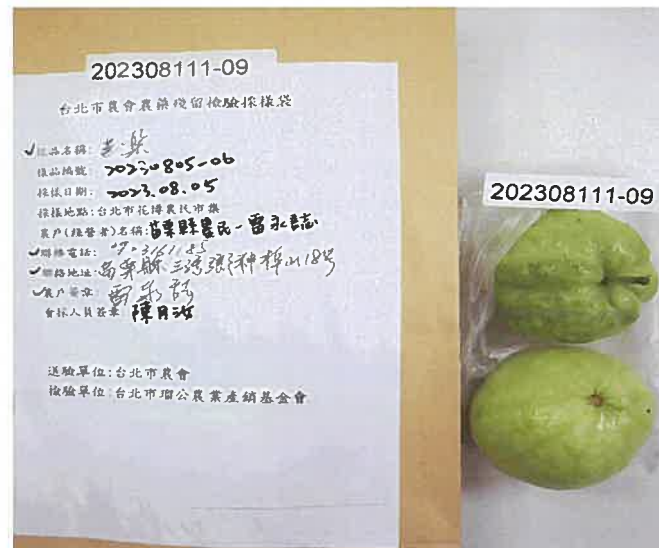 202308111-09
台北市農會農藥殘留檢驗採樣袋
✓樣品名稱: 芭樂
樣品編號: 20230805-06
採樣日期: 2023.08.05
採樣地點:台北市花博農民市集
農戶(經營者)名稱:苗栗縣農民-雷永誌
✓聯絡電話:
✓聯絡地址:苗栗縣三灣鄉 18號
✓農戶簽章: 雷永誌
會採人員簽章 陳月
送驗單位:台北市農會
檢驗單位:台北市瑠公農業產銷基金會
202308111-09